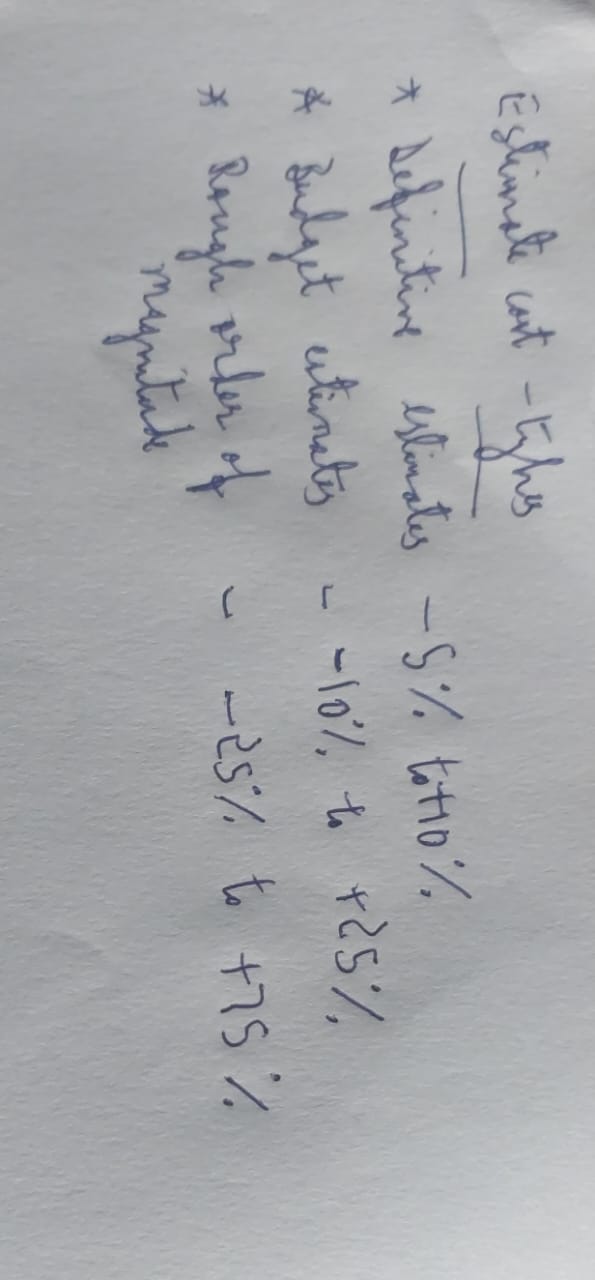 Estimate cost - types
* Definitive estimates -5% to +10%
* Budget estimates - -10% to +25%
* Rough order of - -25% to +75%
magnitude